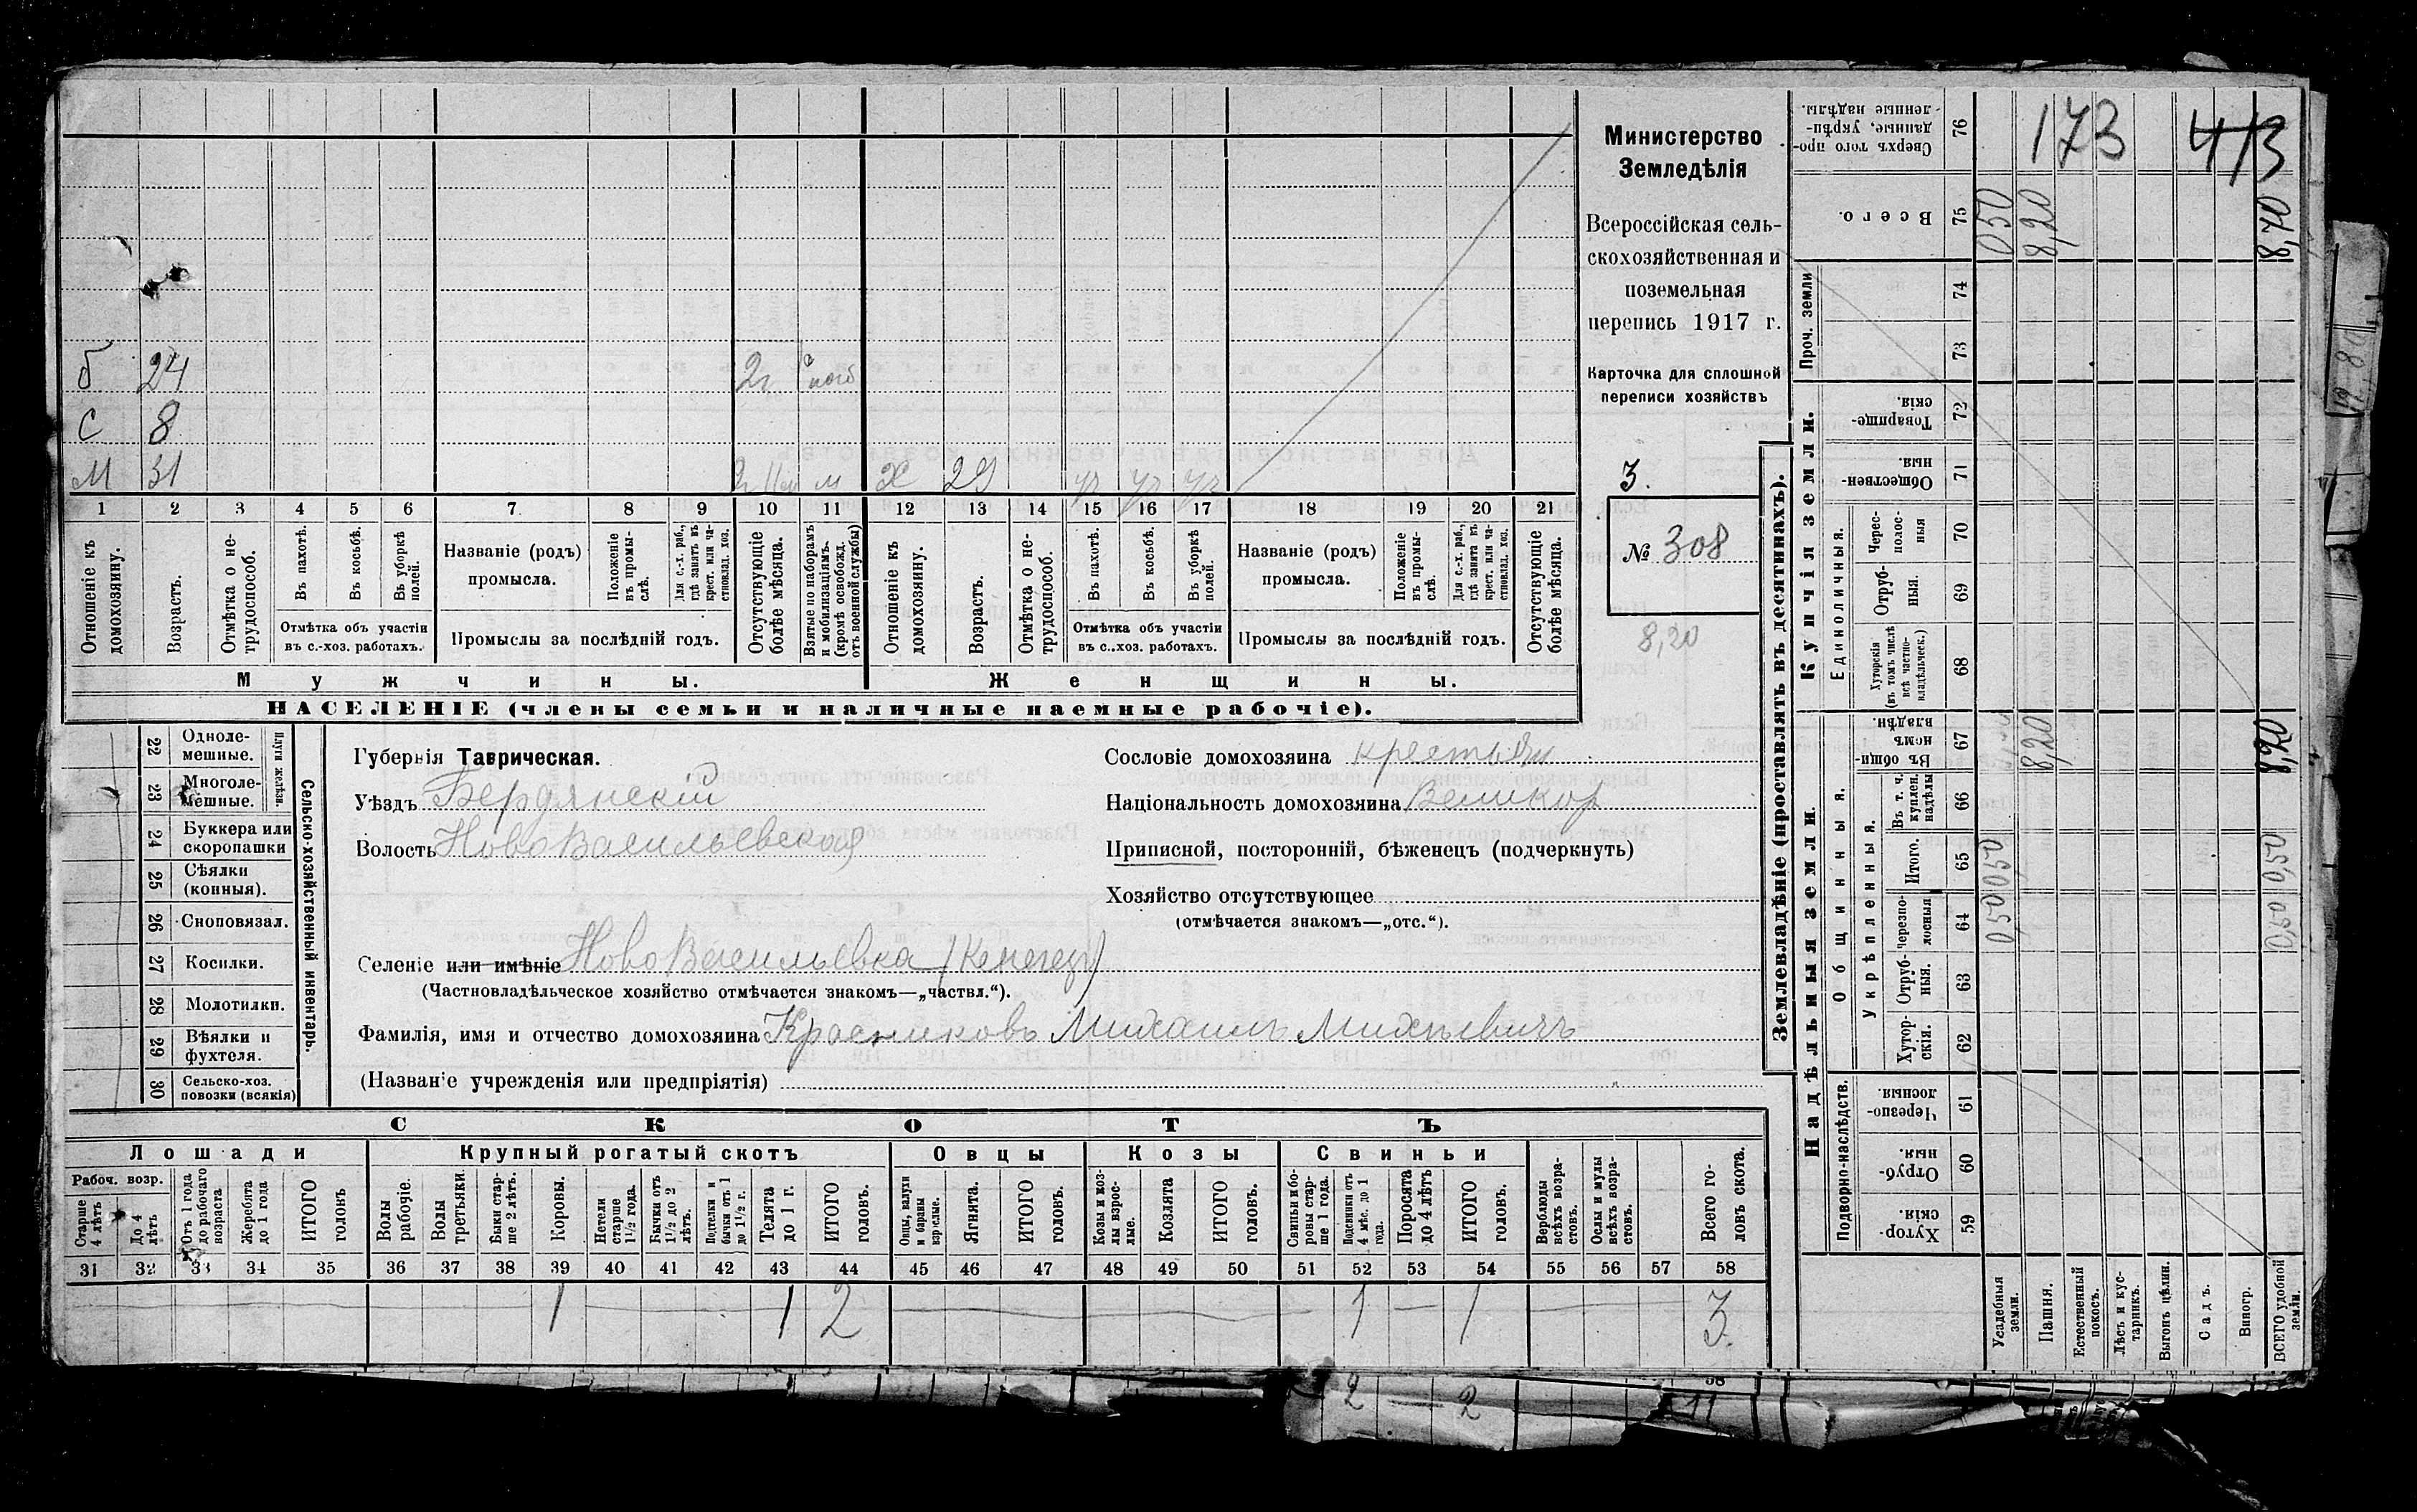 Министерство
Земледѣлія
Всероссійская сель-
скохозяйственная и
поземельная
перепись 1917 г.
Карточка для сплошной
переписи хозяйствъ
3.
№ 308
8,20
б 24 2г
С 8
М 31 м Ж 29
1 2 3 4 5 6 7 8 9 10 11 12 13 14 15 16 17 18 19 20 21
Отношеніе къ домохозяину.
Возрастъ.
Отмѣтка о не-трудоспособ.
Въ пахотѣ.
Въ косьбѣ.
Въ уборкѣ полей.
Отмѣтка объ участіи въ с.-хоз. работахъ.
Названіе (родъ) промысла.
Положеніе въ промы-слѣ.
Для с.-х. раб., гдѣ занятъ въ крест. или ча-стновлад. хоз.
Промыслы за послѣдній годъ.
Отсутствующіе болѣе мѣсяца.
Взятые по наборамъ и мобилизаціямъ. (кромѣ освобожд. отъ военной службы)
Отношеніе къ домохозяину.
Возрастъ.
Отмѣтка о не-трудоспособ.
Въ пахотѣ.
Въ косьбѣ.
Въ уборкѣ полей.
Отмѣтка объ участіи въ с..хоз. работахъ.
Названіе (родъ) промысла.
Положеніе въ промы-слѣ.
Для с.-х. раб., гдѣ занята въ крест. или ча-стновлад. хоз.
Промыслы за послѣдній годъ.
Отсутствующіе болѣе мѣсяца.
Мужчины.
Женщины.
НАСЕЛЕНІЕ (члены семьи и наличные наемные рабочіе).
22 Одноле-мешные.
23 Многоле-мешные.
Плуги желѣзн.
24 Буккера или скоропашки
25 Сѣялки (конныя).
26 Сноповязал.
27 Косилки.
28 Молотилки.
29 Вѣялки и фухтеля.
30 Сельско-хоз. повозки (всякія)
Сельско-хозяйственный инвентарь.
Губернія Таврическая.
Уѣздъ Бердянскій
Волость Ново Васильевская
Сословіе домохозяина крестьян
Національность домохозяина Великор
Приписной, посторонній, бѣженецъ (подчеркнуть)
Хозяйство отсутствующее
(отмѣчается знакомъ—„отс.“).
Селеніе или имѣніе Ново Васильевка (Кенегез)
(Частновладѣльческое хозяйство отмѣчается знакомъ—„частвл.“).
Фамилія, имя и отчество домохозяина Красниковъ Михаилъ Михѣевичъ
(Названіе учрежденія или предпріятія)
СКОТЪ
Лошади
Крупный рогатый скотъ
Овцы
Козы
Свиньи
Рабоч. возр.
Старше 4 лѣтъ
До 4 лѣтъ
Отъ 1 года до рабочаго возраста
Жеребята до 1 года
ИТОГО головъ
Волы рабочіе.
Волы третьяки.
Быки стар-ше 2 лѣтъ.
Коровы.
Нетели старше 1½ года.
Бычки отъ 1½ до 2 лѣтъ.
Подтелки и бычки отъ 1 до 1½ г.
Телята до 1 г.
ИТОГО головъ.
Овцы, валухи и бараны взрослые.
Ягнята.
ИТОГО головъ.
Козы и коз-лы взрос-лые.
Козлята
ИТОГО головъ.
Свиньи и бо-ровы стар-ше 1 года.
Подсвинки отъ 4 мѣс. до 1 года.
Поросята до 4 лѣтъ
ИТОГО головъ.
Верблюды всѣхъ возра-стовъ.
Ослы и мулы всѣхъ возра-стовъ.
Всего го-ловъ скота.
31 32 33 34 35 36 37 38 39 40 41 42 43 44 45 46 47 48 49 50 51 52 53 54 55 56 57 58
1 1 2 1 1 3.
2 2 11
Землевладѣніе (проставлять въ десятинахъ).
Надѣльныя земли.
Купчія земли.
Проч. земли
Подворно-наслѣдств.
Общинныя.
Укрѣпленныя.
Единоличныя.
Хутор-скія. 59
Отруб-ныя. 60
Черезпо-лосныя 61
Хутор-скія. 62
Отруб-ныя. 63
черезпо-лосныя 64
Итого. 65
Въ т. ч. куплен. надѣлы 66
Въ общин-номъ владѣн. 67
Хуторскія (въ томъ числѣ всѣ частно-владѣльческ.) 68
Отруб-ныя. 69
Черес-полос-ныя 70
Обществен-ныя. 71
Товарище-скія. 72
73
74
Всего. 75
Сверхъ того про-данные, укрѣп-ленные надѣлы. 76
Усадебныя земли. 0,50 0,50 0 50
Пашня. 8,20 8,20
Естественный покосъ.
Лѣсъ и кус-тарникъ.
Выгонъ цѣлин.
Садъ.
Виногр.
ВСЕГО удобной земли. 0,50 0,50 8,20 8,70
173
413